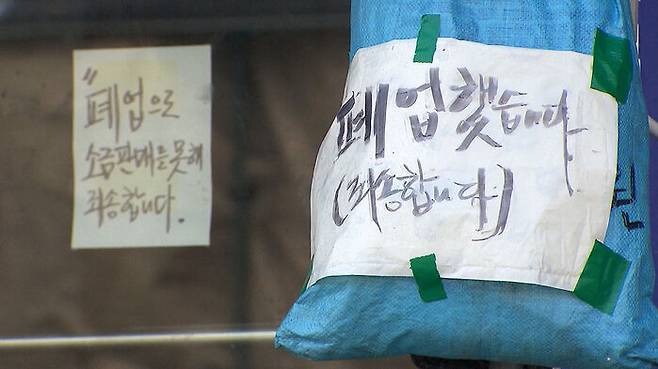 "폐업으로
소금판매를못해
죄송합니다.
폐업했습니다
(죄송합니다)